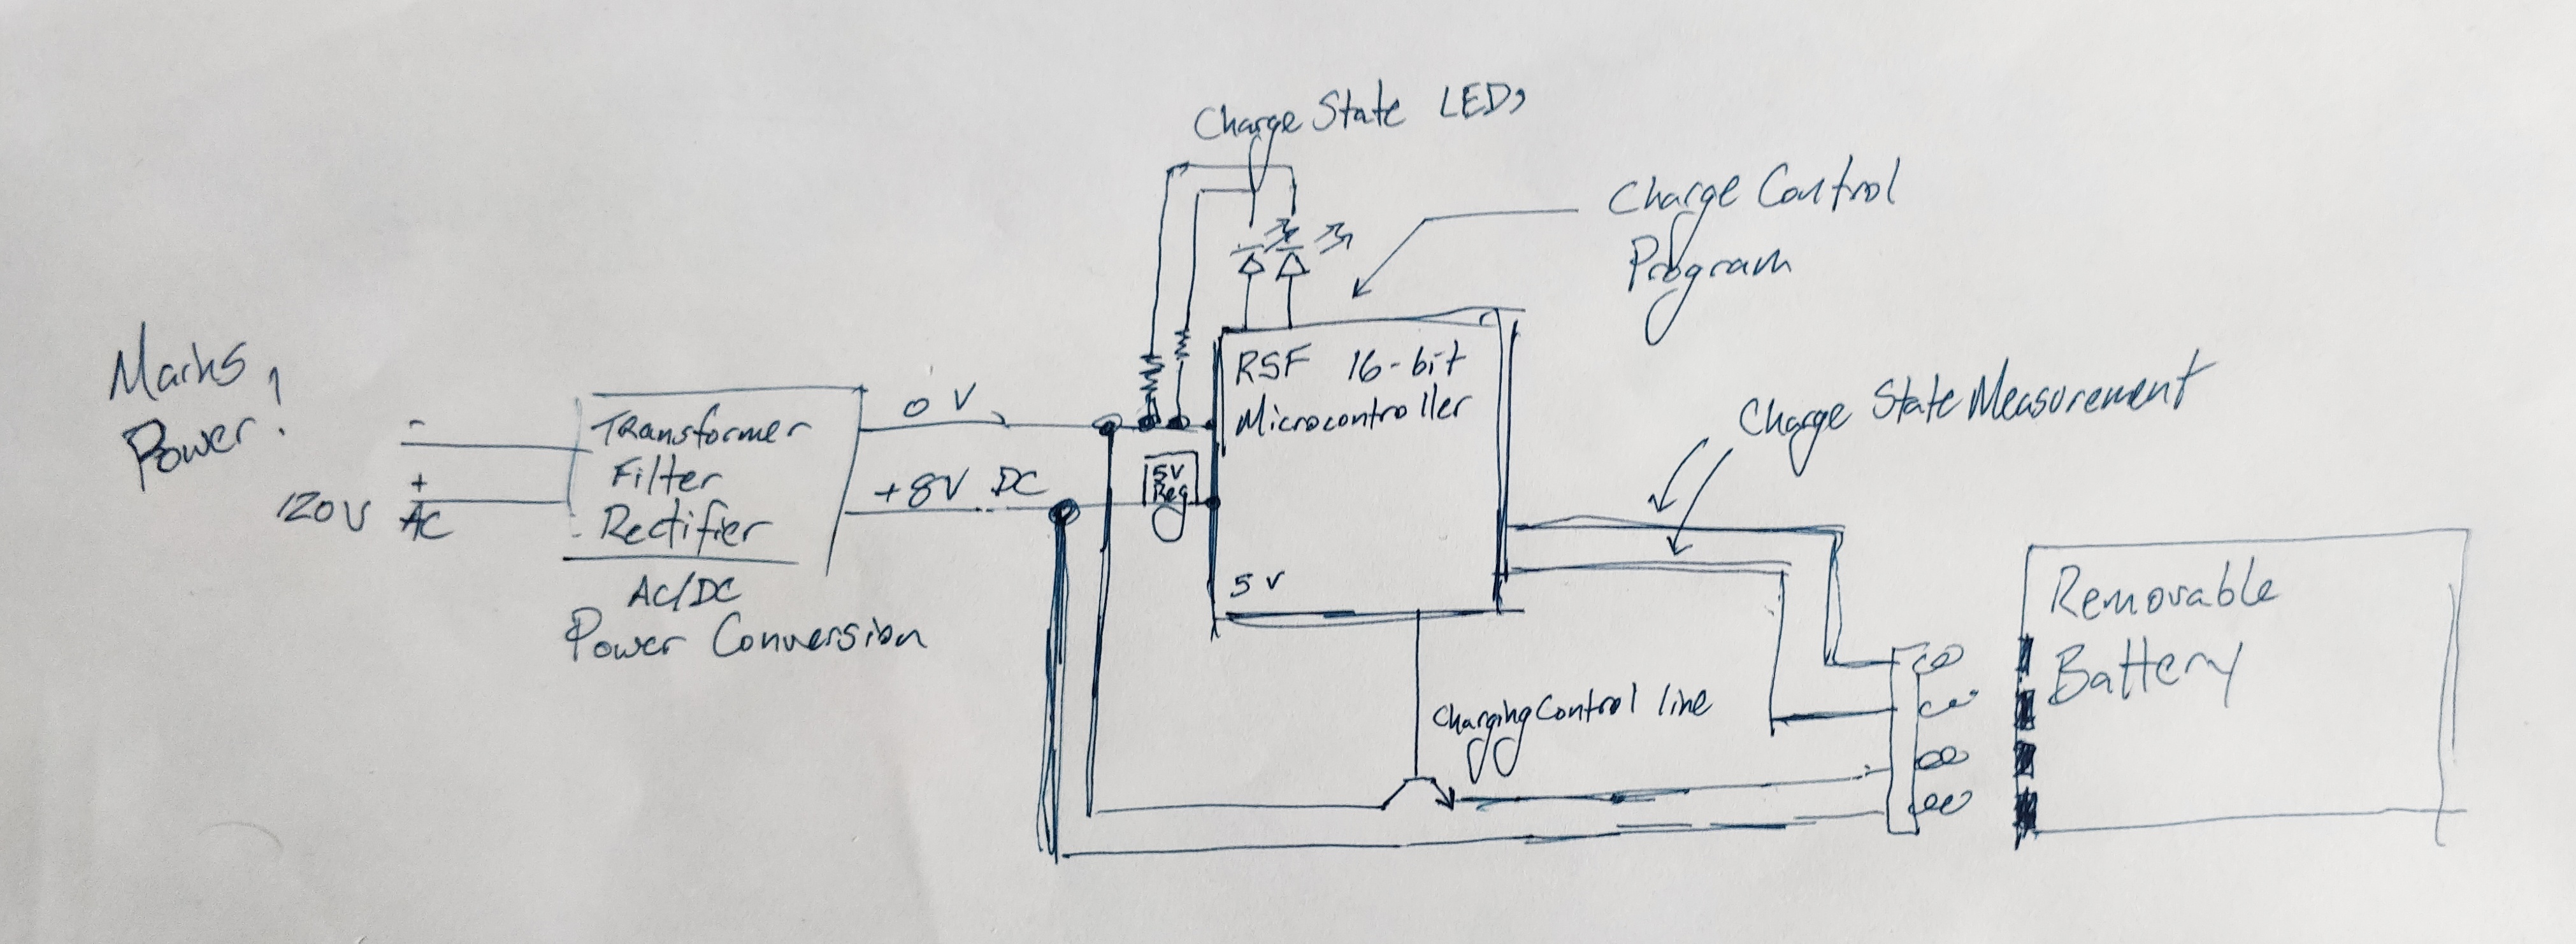 Charge State LEDs
Charge Control
Program
Power!
-
+
120V AC
Transformer
Filter
Rectifier
AC/DC
Power Conversion
0 V
+8V DC
5V
Reg
RSF 16-bit
Microcontroller
5 V
Charge State Measurement
Charging Control line
Removable
Battery